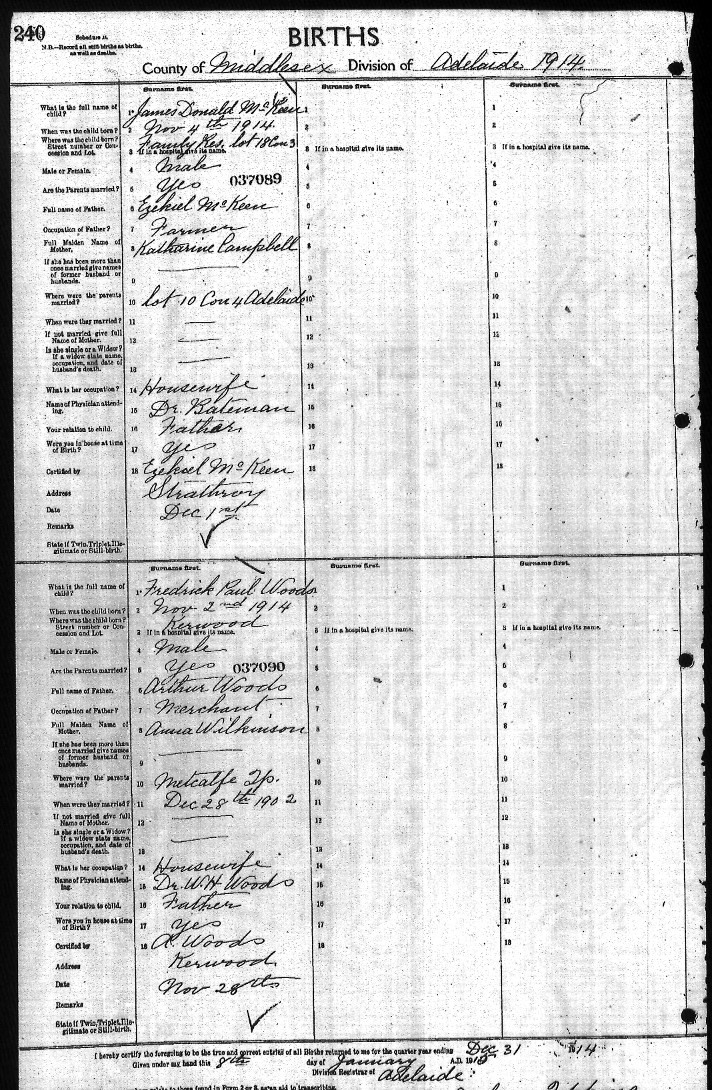 240
Schedule A.
N.B.—Record all still births as births,
as well as deaths.
BIRTHS
County of Middlesex Division of Adelaide 1914
Surname first. Surname first. Surname first.
What is the full name of child? 1 James Donald McKeen 1
When was the child born? 2 Nov 4th 1914 2 2
Where was the child born? Street number or Concession and Lot. Family Res. lot 18 Con 3
3 If in a hospital give its name. 3 If in a hospital give its name. 3 If in a hospital give its name.
Male or Female. 4 Male 4 4
Are the Parents married? 5 Yes 037089 5 5
Full name of Father. 6 Ezekiel McKeen 6 6
Occupation of Father? 7 Farmer 7 7
Full Maiden Name of Mother. 8 Katharine Campbell 8 8
If she has been more than once married give names of former husband or husbands. 9 9 9
Where were the parents married? 10 lot 10 Con 4 Adelaide 10 10
When were they married? 11 — 11 11
If not married give full Name of Mother. 12 — 12 12
Is she single or a Widow? If a widow state name, occupation, and date of husband's death. 13 — 13 13
What is her occupation? 14 Housewife 14 14
Name of Physician attending. 15 Dr. Bateman 15 15
Your relation to child. 16 Father 16 16
Were you in house at time of Birth? 17 Yes 17 17
Certified by 18 Ezekiel McKeen 18 18
Address Strathroy
Date Dec 1st
Remarks
State if Twin, Triplet, Illegitimate or Still-birth.
Surname first. Surname first. Surname first.
What is the full name of child? 1 Fredrick Paul Woods 1
When was the child born? 2 Nov 2nd 1914 2 2
Where was the child born? Street number or Concession and Lot. Kerwood
3 If in a hospital give its name. 3 If in a hospital give its name. 3 If in a hospital give its name.
Male or Female. 4 Male 4 4
Are the Parents married? 5 Yes 037090 5 5
Full name of Father. 6 Arthur Woods 6 6
Occupation of Father? 7 Merchant 7 7
Full Maiden Name of Mother. 8 Anna Wilkinson 8 8
If she has been more than once married give names of former husband or husbands. 9 9 9
Where were the parents married? 10 Metcalfe Tp. 10 10
When were they married? 11 Dec 28th 1902 11 11
If not married give full Name of Mother. 12 — 12 12
Is she single or a Widow? If a widow state name, occupation, and date of husband's death. 13 — 13 13
What is her occupation? 14 Housewife 14 14
Name of Physician attending. 15 Dr. W. H. Woods 15 15
Your relation to child. 16 Father 16 16
Were you in house at time of Birth? 17 Yes 17 17
Certified by 18 A. Woods 18 18
Address Kerwood
Date Nov 28th
Remarks
State if Twin, Triplet, Illegitimate or Still-birth.
I hereby certify the foregoing to be the true and correct entries of all Births returned to me for the quarter year ending Dec 31 1914
Given under my hand this 8th day of January A.D. 1915
Division Registrar of Adelaide